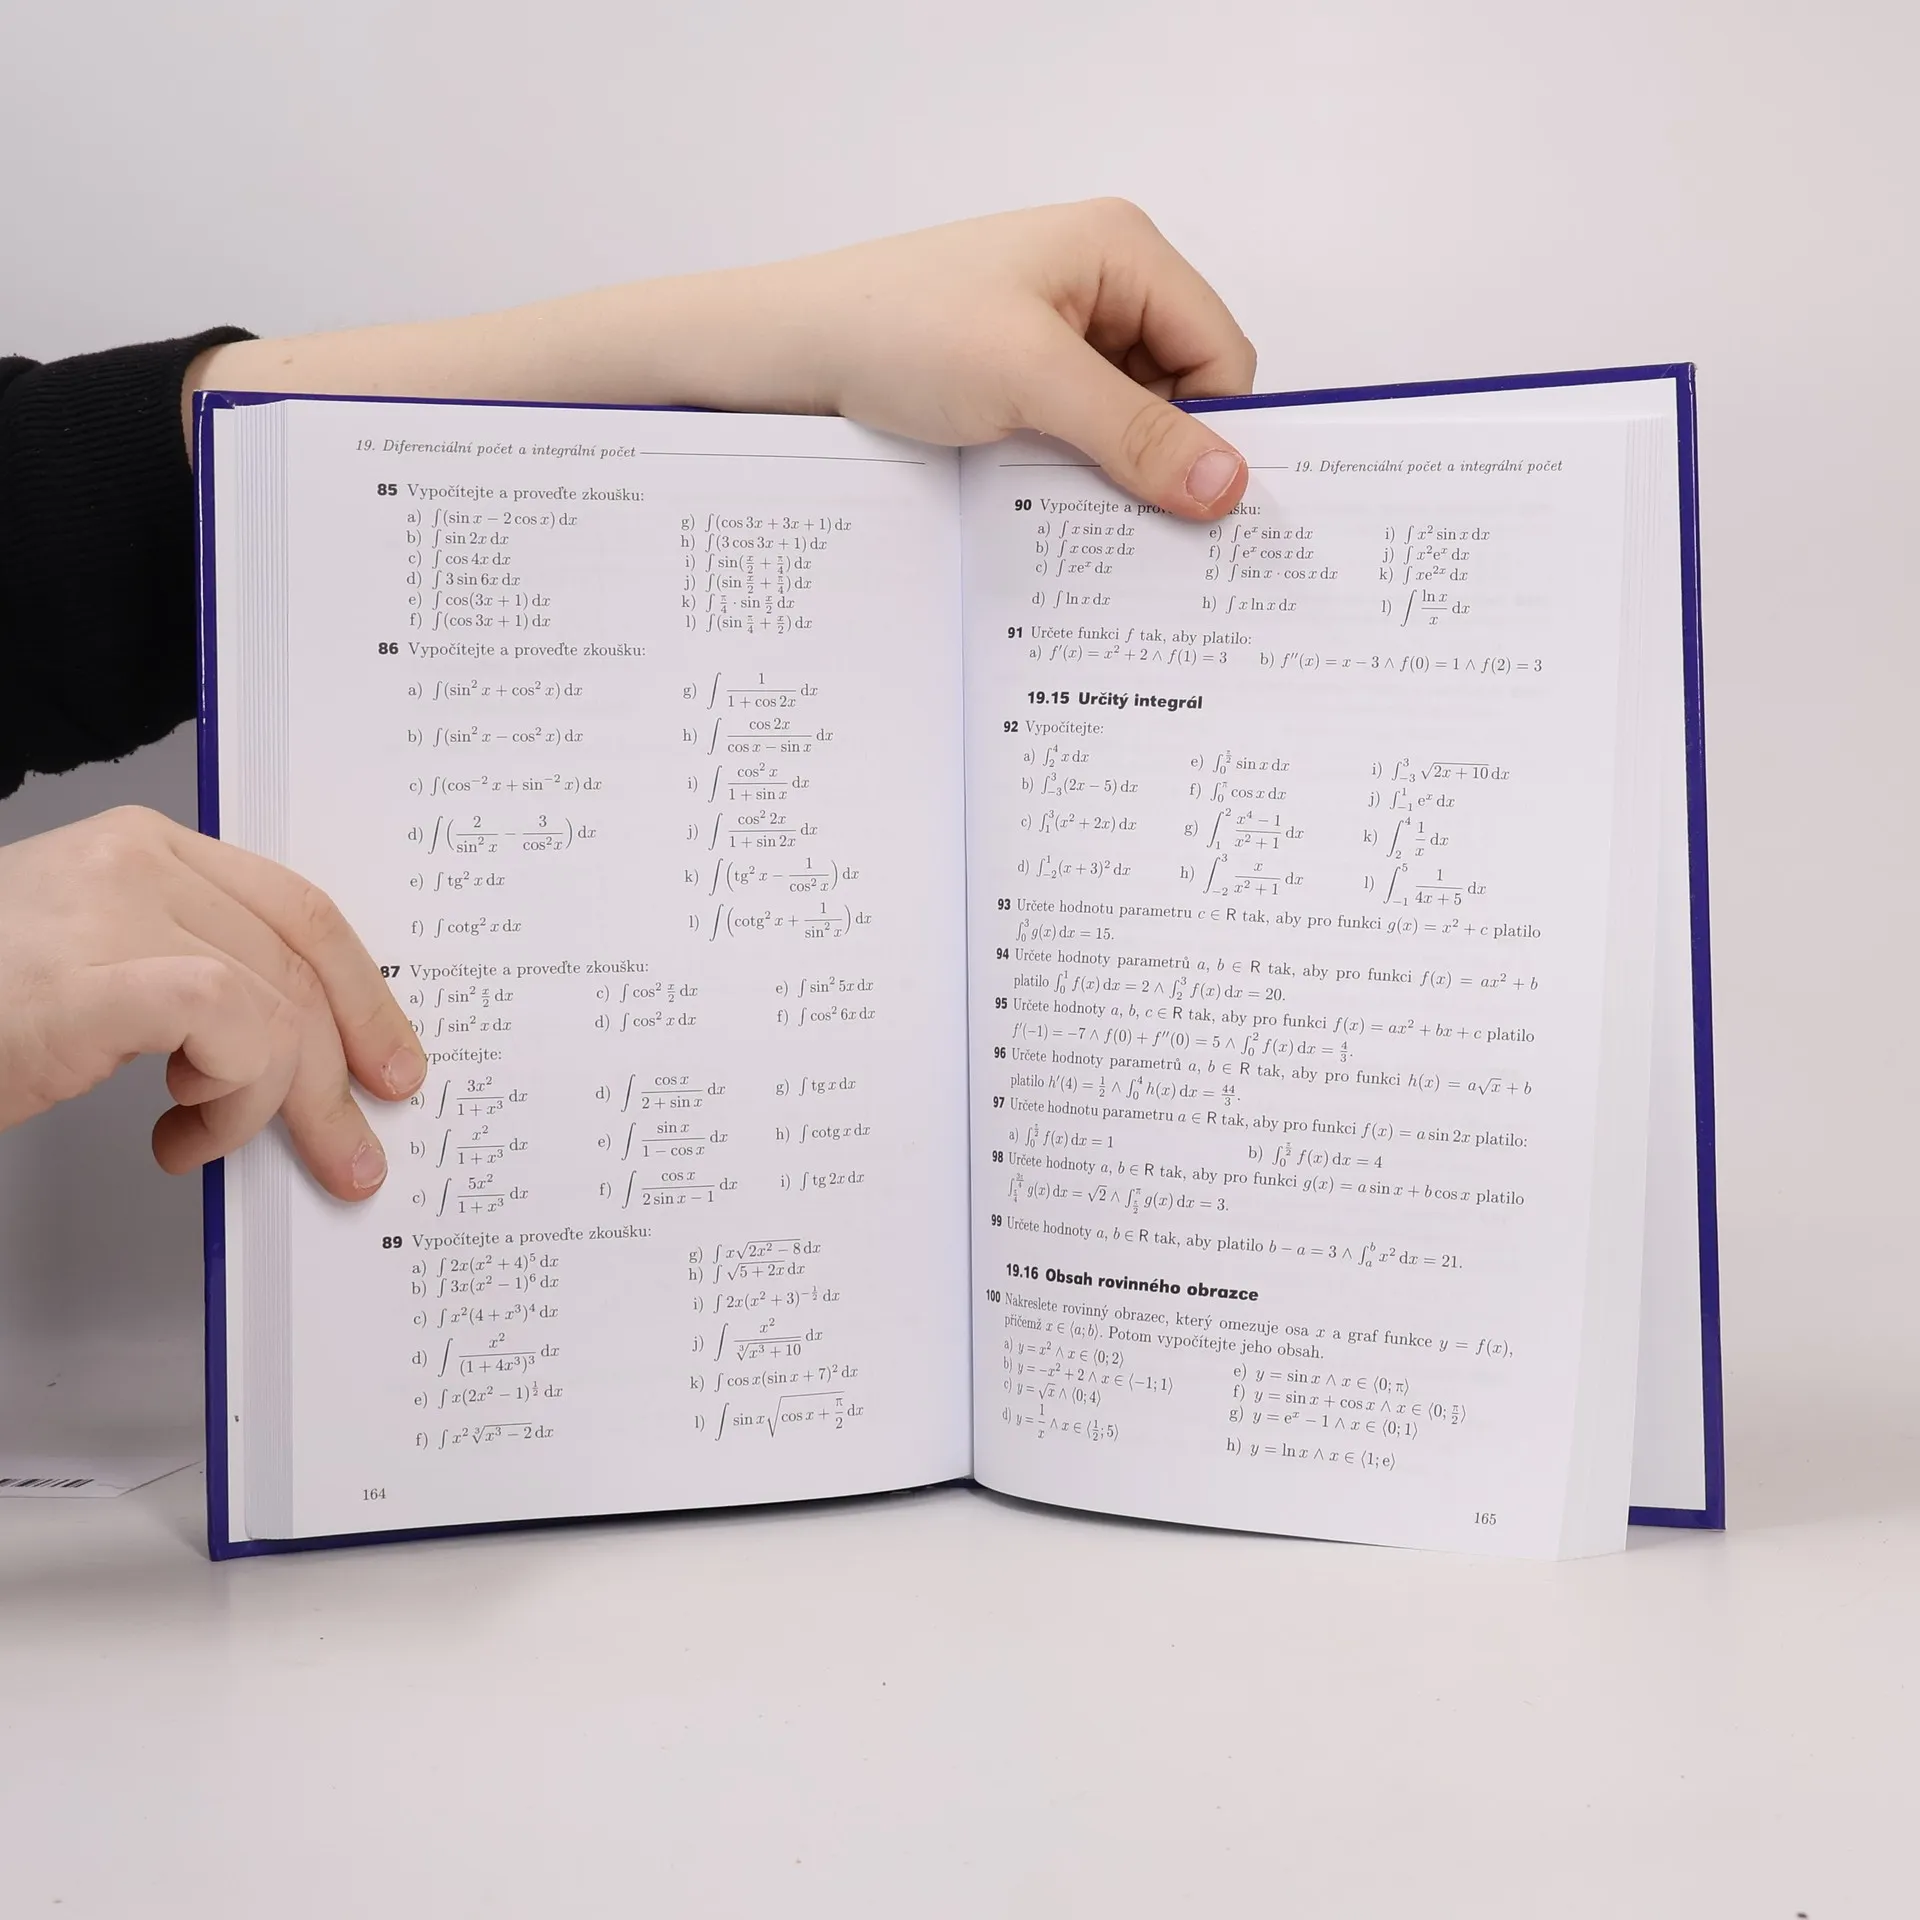 19. Diferenciální počet a integrální počet
85 Vypočítejte a proveďte zkoušku:
a) ∫(sin x − 2 cos x) dx
b) ∫ sin 2x dx
c) ∫ cos 4x dx
d) ∫ 3 sin 6x dx
e) ∫ cos(3x + 1) dx
f) ∫(cos 3x + 1) dx
g) ∫(cos 3x + 3x + 1) dx
h) ∫(3 cos 3x + 1) dx
i) ∫ sin(x/2 + π/4) dx
j) ∫(sin x/2 + π/4) dx
k) ∫ π/4 · sin x/2 dx
l) ∫(sin π/4 + x/2) dx
86 Vypočítejte a proveďte zkoušku:
a) ∫(sin² x + cos² x) dx
b) ∫(sin² x − cos² x) dx
c) ∫(cos⁻² x + sin⁻² x) dx
d) ∫(2/sin² x − 3/cos² x) dx
e) ∫ tg² x dx
f) ∫ cotg² x dx
g) ∫ 1/(1 + cos 2x) dx
h) ∫ cos 2x/(cos x − sin x) dx
i) ∫ cos² x/(1 + sin x) dx
j) ∫ cos² 2x/(1 + sin 2x) dx
k) ∫(tg² x − 1/cos² x) dx
l) ∫(cotg² x + 1/sin² x) dx
87 Vypočítejte a proveďte zkoušku:
a) ∫ sin² x/2 dx
b) ∫ sin² x dx
c) ∫ cos² x/2 dx
d) ∫ cos² x dx
e) ∫ sin² 5x dx
f) ∫ cos² 6x dx
ypočítejte:
a) ∫ 3x²/(1 + x³) dx
b) ∫ x²/(1 + x³) dx
c) ∫ 5x²/(1 + x³) dx
d) ∫ cos x/(2 + sin x) dx
e) ∫ sin x/(1 − cos x) dx
f) ∫ cos x/(2 sin x − 1) dx
g) ∫ tg x dx
h) ∫ cotg x dx
i) ∫ tg 2x dx
89 Vypočítejte a proveďte zkoušku:
a) ∫ 2x(x² + 4)⁵ dx
b) ∫ 3x(x² − 1)⁶ dx
c) ∫ x²(4 + x³)⁴ dx
d) ∫ x²/(1 + 4x³)³ dx
e) ∫ x(2x² − 1)^(1/2) dx
f) ∫ x² ∛(x³ − 2) dx
g) ∫ x√(2x² − 8) dx
h) ∫ √(5 + 2x) dx
i) ∫ 2x(x² + 3)^(−1/2) dx
j) ∫ x²/∛(x³ + 10) dx
k) ∫ cos x(sin x + 7)² dx
l) ∫ sin x√(cos x + π/2) dx
164
19. Diferenciální počet a integrální počet
90 Vypočítejte a pro šku:
a) ∫ x sin x dx
b) ∫ x cos x dx
c) ∫ xeˣ dx
d) ∫ ln x dx
e) ∫ eˣ sin x dx
f) ∫ eˣ cos x dx
g) ∫ sin x · cos x dx
h) ∫ x ln x dx
i) ∫ x² sin x dx
j) ∫ x²eˣ dx
k) ∫ xe²ˣ dx
l) ∫ ln x/x dx
91 Určete funkci f tak, aby platilo:
a) f′(x) = x² + 2 ∧ f(1) = 3 b) f″(x) = x − 3 ∧ f(0) = 1 ∧ f(2) = 3
19.15 Určitý integrál
92 Vypočítejte:
a) ∫₂⁴ x dx
b) ∫₋₃³ (2x − 5) dx
c) ∫₁³ (x² + 2x) dx
d) ∫₋₂¹ (x + 3)² dx
e) ∫₀^(π/2) sin x dx
f) ∫₀^π cos x dx
g) ∫₁² (x⁴ − 1)/(x² + 1) dx
h) ∫₋₂³ x/(x² + 1) dx
i) ∫₋₃³ √(2x + 10) dx
j) ∫₋₁¹ eˣ dx
k) ∫₂⁴ 1/x dx
l) ∫₋₁⁵ 1/(4x + 5) dx
93 Určete hodnotu parametru c ∈ R tak, aby pro funkci g(x) = x² + c platilo
∫₀³ g(x) dx = 15.
94 Určete hodnoty parametrů a, b ∈ R tak, aby pro funkci f(x) = ax² + b
platilo ∫₀¹ f(x) dx = 2 ∧ ∫₂³ f(x) dx = 20.
95 Určete hodnoty a, b, c ∈ R tak, aby pro funkci f(x) = ax² + bx + c platilo
f′(−1) = −7 ∧ f(0) + f″(0) = 5 ∧ ∫₀² f(x) dx = 4/3.
96 Určete hodnoty parametrů a, b ∈ R tak, aby pro funkci h(x) = a√x + b
platilo h′(4) = 1/2 ∧ ∫₀⁴ h(x) dx = 44/3.
97 Určete hodnotu parametru a ∈ R tak, aby pro funkci f(x) = a sin 2x platilo:
a) ∫₀^(π/2) f(x) dx = 1 b) ∫₀^(π/2) f(x) dx = 4
98 Určete hodnoty a, b ∈ R tak, aby pro funkci g(x) = a sin x + b cos x platilo
g(x) dx = √2 ∧ ∫_(π/2)^π g(x) dx = 3.
99 Určete hodnoty a, b ∈ R tak, aby platilo b − a = 3 ∧ ∫ₐᵇ x² dx = 21.
19.16 Obsah rovinného obrazce
100 Nakreslete rovinný obrazec, který omezuje osa x a graf funkce y = f(x),
přičemž x ∈ ⟨a; b⟩. Potom vypočítejte jeho obsah.
a) y = x² ∧ x ∈ ⟨0; 2⟩
b) y = −x² + 2 ∧ x ∈ ⟨−1; 1⟩
c) y = √x ∧ ⟨0; 4⟩
d) y = 1/x ∧ x ∈ ⟨1/2; 5⟩
e) y = sin x ∧ x ∈ ⟨0; π⟩
f) y = sin x + cos x ∧ x ∈ ⟨0; π/2⟩
g) y = eˣ − 1 ∧ x ∈ ⟨0; 1⟩
h) y = ln x ∧ x ∈ ⟨1; e⟩
165